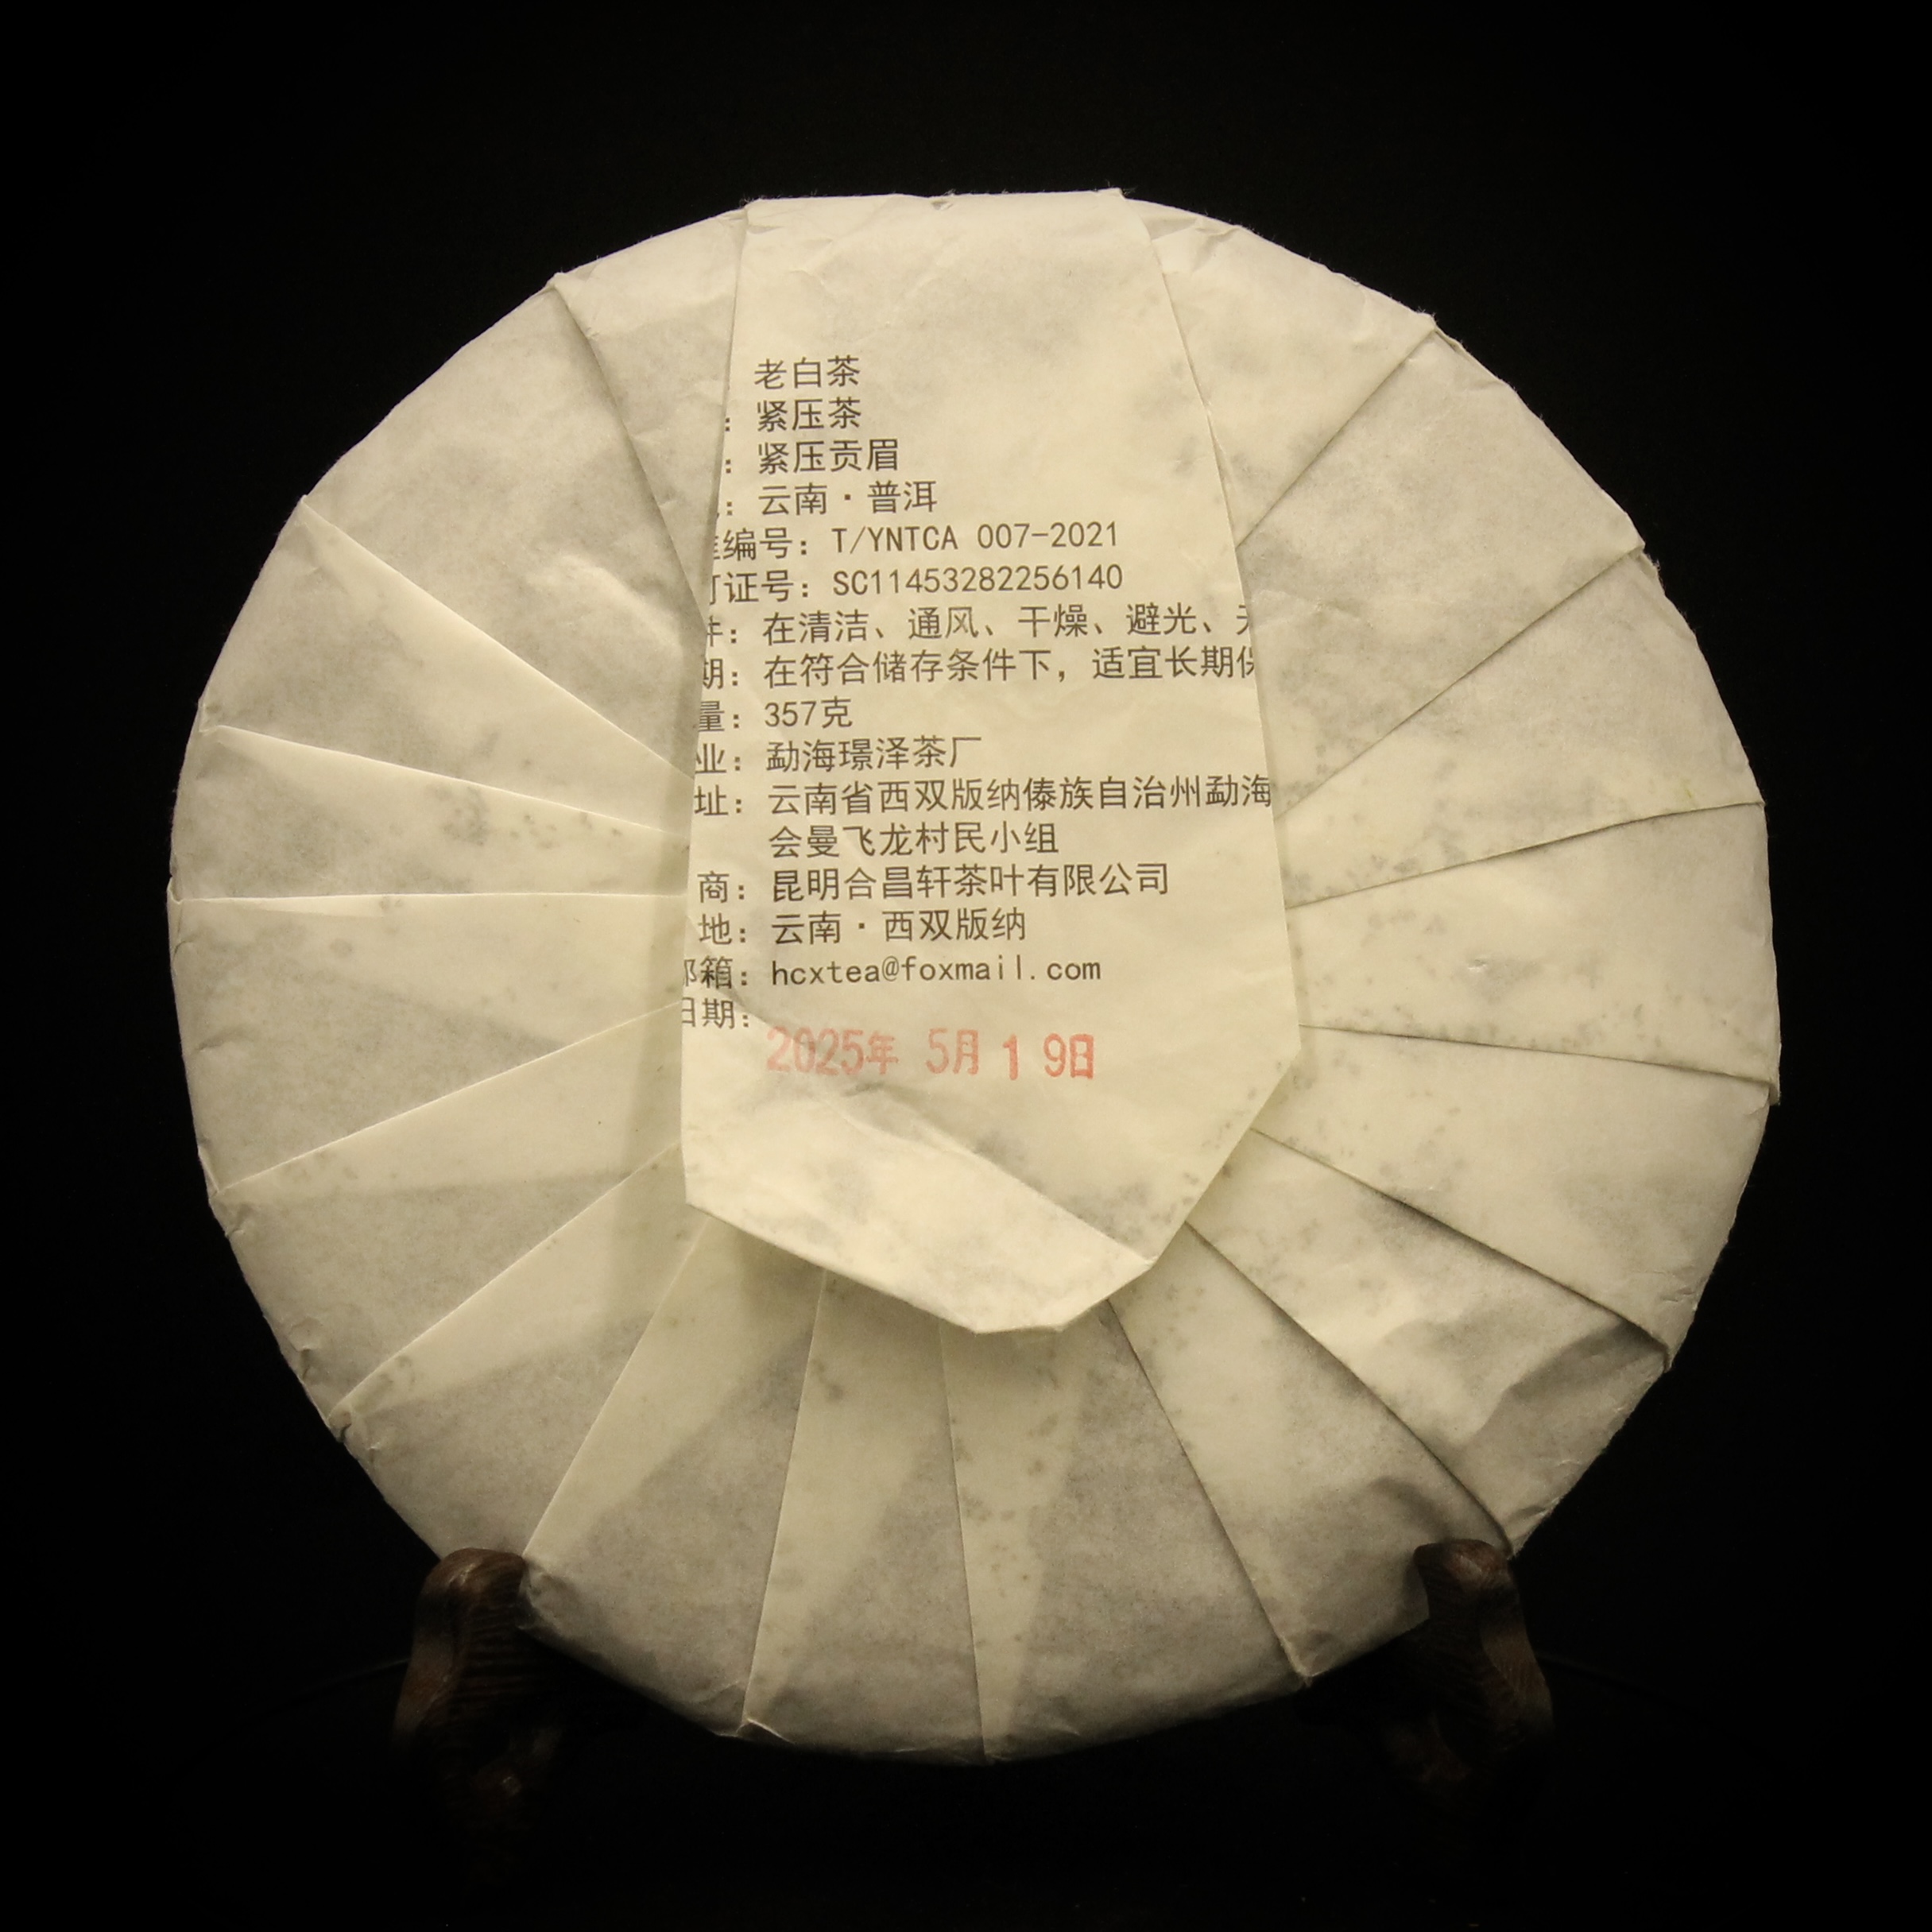 老白茶
：紧压茶
：紧压贡眉
：云南·普洱
编号：T/YNTCA 007-2021
证号：SC11453282256140
：在清洁、通风、干燥、避光、
期：在符合储存条件下，适宜长期
量：357克
业：勐海璟泽茶厂
址：云南省西双版纳傣族自治州勐海
会曼飞龙村民小组
商：昆明合昌轩茶叶有限公司
地：云南·西双版纳
邮箱：hcxtea@foxmail.com
日期：
2025年 5月19日